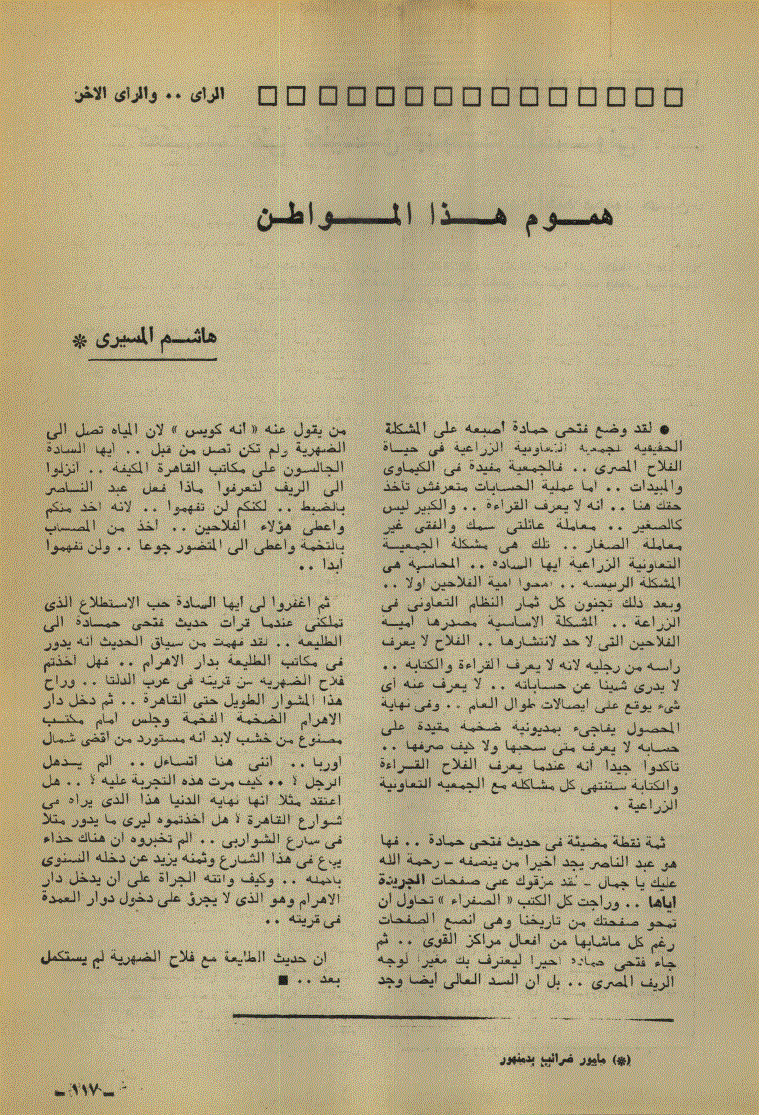 الرأى .. والرأى الآخر
همـوم هـذا المـواطن
هاشـم المسيرى *
● لقد وضع فتحى حمادة اصبعه على المشكلة
الحقيقية للجمعية التعاونية الزراعية فى حيـاة
الفلاح المصرى .. فالجمعية مفيدة فى الكيماوى
والمبيدات .. أما عملية الحسابات متعرفش تاخد
حقك هنا .. انه لا يعرف القراءة .. والكبير ليس
كالصغير .. معاملة عائلتى سمك والفقى غير
معاملة الصغار .. تلك هى مشكلة الجمعيـة
التعاونية الزراعية أيها الساده .. المحاسبة هى
المشكلة الرئيسية .. امحوا أمية الفلاحين أولا ..
وبعد ذلك تجنون كل ثمار النظام التعاونى فى
الزراعة .. المشكلة الاساسية مصدرها أميـة
الفلاحين التى لا حد لانتشارها .. الفلاح لا يعرف
راسه من رجليه لانه لا يعرف القراءة والكتابة ..
لا يدرى شيئا عن حساباته .. لا يعرف عنه أى
شىء يوقع على ايصالات طوال العام .. وفى نهاية
المحصول يفاجىء بمديونية ضخمة مقيدة على
حسابه لا يعرف متى سحبها ولا كيف صرفها ..
تاكدوا جيدا أنه عندما يعرف الفلاح القـراءة
والكتابة ستنتهى كل مشاكله مع الجمعية التعاونية
الزراعية .
ثمة نقطة مضيئة فى حديث فتحى حمادة .. فها
هو عبد الناصر يجد أخيرا من ينصفه ـ رحمة الله
عليك يا جمال ـ لقد مزقوك على صفحات الجريدة
اياها .. وراجت كل الكتب « الصفراء » تحاول أن
تمحو صفحتك من تاريخنا وهى أنصع الصفحات
رغم كل ماشابها من أفعال مراكز القوى .. ثم
جاء فتحى حمادة أخيرا ليعترف بك مغيرا لوجه
الريف المصرى .. بل أن السد العالى أيضا وجد
من يقول عنه « أنه كويس » لان المياه تصل الى
الضهرية ولم تكن تصل من قبل .. أيها السادة
الجالسون على مكاتب القاهرة المكيفة .. انزلوا
الى الريف لتعرفوا ماذا فعل عبد النـاصر
بالضبط .. لكنكم لن تفهموا .. لانه أخذ منكم
واعطى هؤلاء الفلاحين .. أخذ من المصـاب
بالتخمة وأعطى الى المتضور جوعا .. ولن تفهموا
أبدا ..
ثم اغفروا لى أيها السادة حب الاستطلاع الذى
تملكنى عندما قرأت حديث فتحى حمـادة الى
الطليعة .. لقد فهمت من سياق الحديث انه يدور
فى مكاتب الطليعة بدار الاهرام .. فهل أخذتم
فلاح الضهرية من قريته فى غرب الدلتا .. وراح
هذا المشوار الطويل حتى القاهرة .. ثم دخل دار
الاهرام الضخمة الفخمة وجلس أمام مكتـب
مصنوع من خشب لابد أنه مستورد من أقصى شمال
أوربا .. اننى هنا أتساءل .. ألم يـذهل
الرجل ؟ .. كيف مرت هذه التجربة عليه ؟ .. هل
اعتقد مثلا أنها نهاية الدنيا هذا الذى يراه فى
شوارع القاهرة ؟ هل أخذتموه ليرى ما يدور مثلا
فى شارع الشواربى .. ألم تخبروه أن هناك حذاء
يباع فى هذا الشارع وثمنه يزيد عن دخله السنوى
بأكمله .. وكيف واتته الجرأة على أن يدخل دار
الاهرام وهو الذى لا يجرؤ على دخول دوار العمدة
فى قريته ..
ان حديث الطليعة مع فلاح الضهرية لم يستكمل
بعد .. ■
(*) مأمور ضرائب بدمنهور
ـ ١١٧ ـ